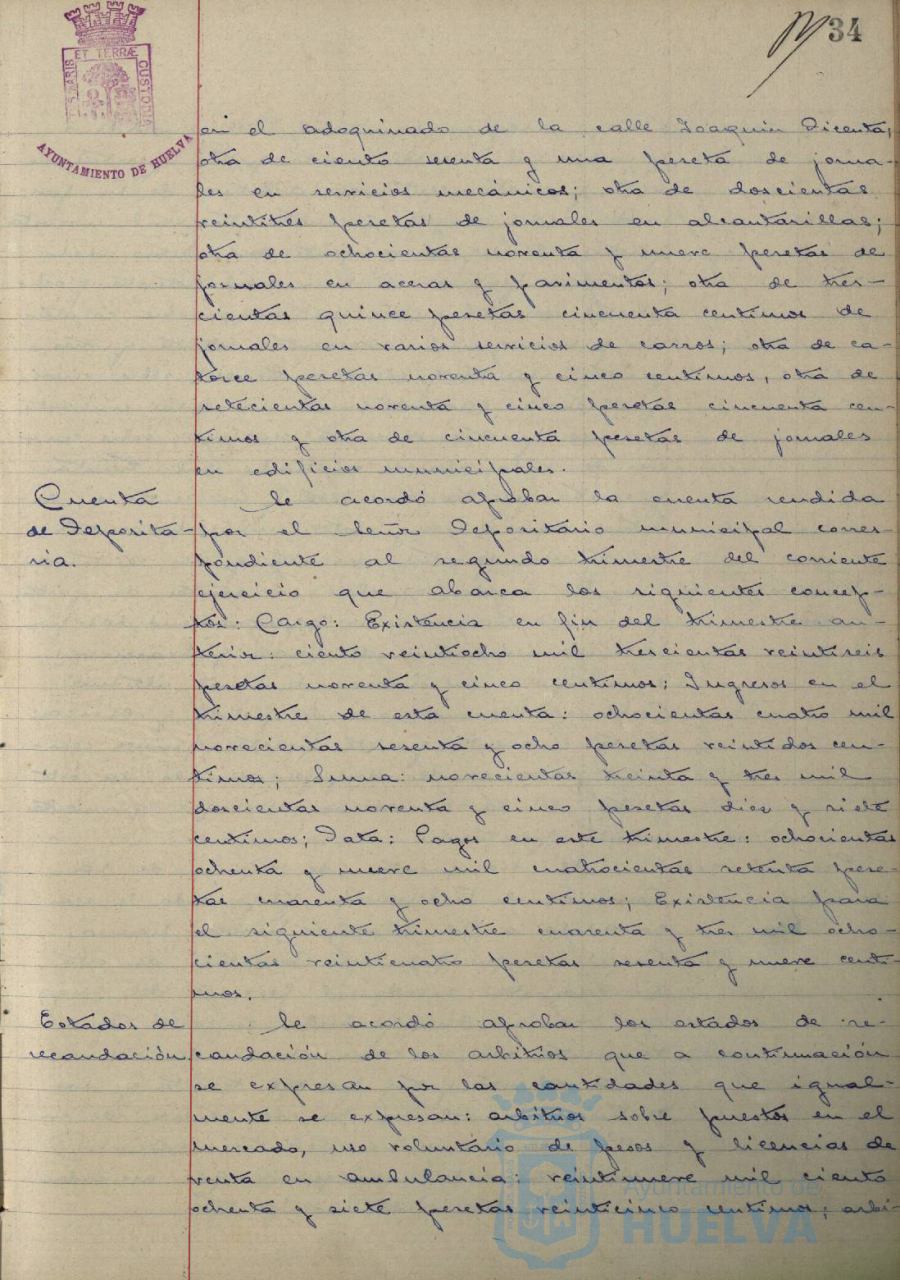 34
PORTUS MARIS ET TERRÆ CUSTODIA
AYUNTAMIENTO DE HUELVA
en el adoquinado de la calle Joaquin Dicenta,
otra de ciento sesenta y una peseta de jorna-
les en servicios mecánicos; otra de doscientas
veintitres pesetas de jornales en alcantarillas;
otra de ochocientas noventa y nueve pesetas de
jornales en aceras y pavimentos; otra de tres-
cientas quince pesetas cincuenta centimos de
jornales en varios servicios de carros; otra de ca-
torce pesetas noventa y cinco centimos, otra de
setecientas noventa y cinco pesetas cincuenta cen-
timos y otra de cincuenta pesetas de jornales
en edificios municipales.
Cuenta
de Deposita-
ria.
Se acordó aprobar la cuenta rendida
por el Señor Depositário municipal corres-
pondiente al segundo trimestre del corriente
ejercicio que abarca los siguientes concep-
tos: Cargo: Existencia en fin del trimestre an-
terior: ciento veintiocho mil trescientas veintiseis
pesetas noventa y cinco centimos; Ingresos en el
trimestre de esta cuenta: ochocientas cuatro mil
novecientas sesenta y ocho pesetas veintidos cen-
timos; Suma: novecientas treinta y tres mil
doscientas noventa y cinco pesetas diez y siete
centimos; Data: Pagos en este trimestre: ochocientas
ochenta y nueve mil cuatrocientas setenta pese-
tas cuarenta y ocho centimos; Existencia para
el siguiente trimestre cuarenta y tres mil ocho-
cientas veinticuatro pesetas sesenta y nueve centi-
mos.
Estados de
recaudación
Se acordó aprobar los estados de re-
caudación de los arbitrios que a continuación
se expresan por las cantidades que igual-
mente se expresan: arbitrios sobre puestos en el
mercado, uso voluntario de pesos y licencias de
venta en ambulancia: veintinueve mil ciento
ochenta y siete pesetas veinticinco centimos; arbi-
Ayuntamiento de
HUELVA